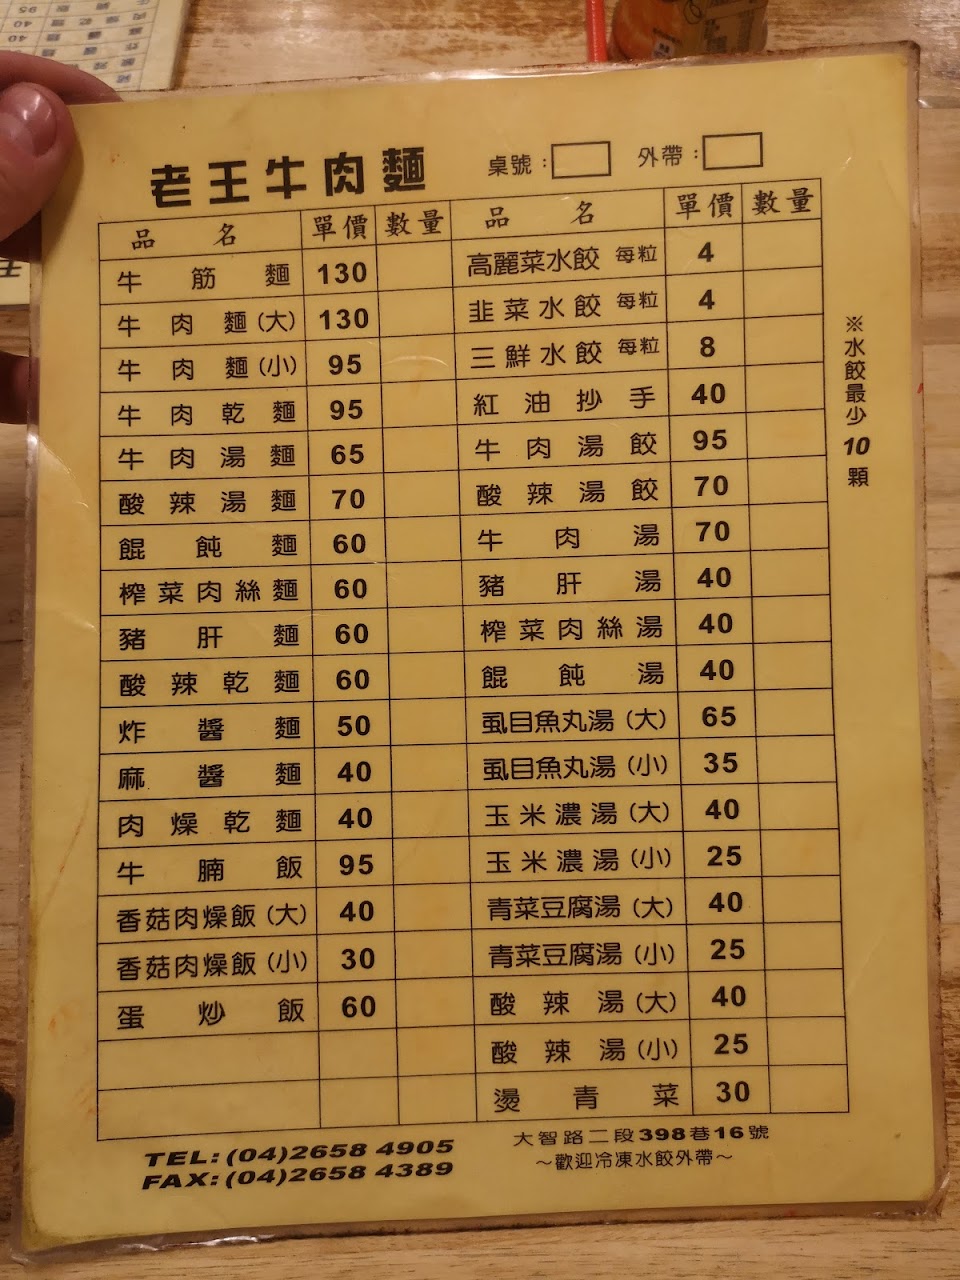 老王牛肉麵
桌號：
外帶：
品名 單價 數量 品名 單價 數量
牛筋麵 130 高麗菜水餃 每粒 4
牛肉麵(大) 130 韭菜水餃 每粒 4
牛肉麵(小) 95 三鮮水餃 每粒 8
牛肉乾麵 95 紅油抄手 40
牛肉湯麵 65 牛肉湯餃 95
酸辣湯麵 70 酸辣湯餃 70
餛飩麵 60 牛肉湯 70
榨菜肉絲麵 60 豬肝湯 40
豬肝麵 60 榨菜肉絲湯 40
酸辣乾麵 60 餛飩湯 40
炸醬麵 50 虱目魚丸湯(大) 65
麻醬麵 40 虱目魚丸湯(小) 35
肉燥乾麵 40 玉米濃湯(大) 40
牛腩飯 95 玉米濃湯(小) 25
香菇肉燥飯(大) 40 青菜豆腐湯(大) 40
香菇肉燥飯(小) 30 青菜豆腐湯(小) 25
蛋炒飯 60 酸辣湯(大) 40
酸辣湯(小) 25
燙青菜 30
※水餃最少10顆
TEL:(04)2658 4905
FAX:(04)2658 4389
大智路二段398巷16號
～歡迎冷凍水餃外帶～